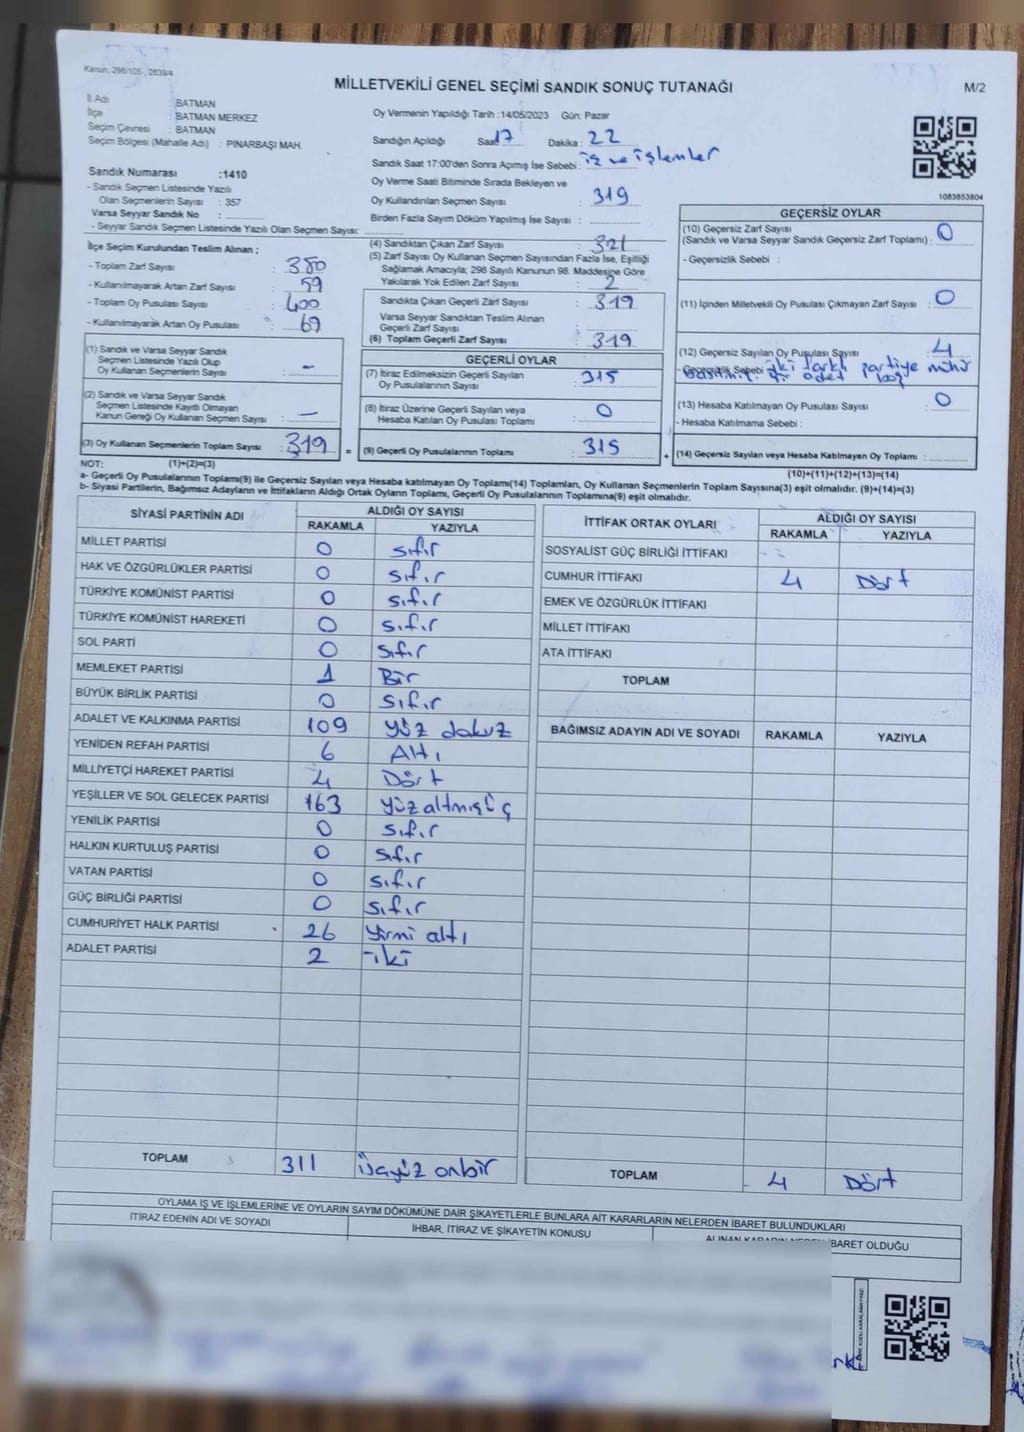 Kanun: 298/105 , 2839/4
MİLLETVEKİLİ GENEL SEÇİMİ SANDIK SONUÇ TUTANAĞI
M/2
İl Adı : BATMAN
İlçe : BATMAN MERKEZ
Seçim Çevresi : BATMAN
Seçim Bölgesi (Mahalle Adı) : PINARBAŞI MAH.
Oy Vermenin Yapıldığı Tarih :14/05/2023 Gün: Pazar
Sandığın Açıldığı Saat 17 Dakika : 22
Sandık Saat 17:00'den Sonra Açımış İse Sebebi : iş ve işlemler
Oy Verme Saati Bitiminde Sırada Bekleyen ve
Oy Kullandırılan Seçmen Sayısı : 319
Birden Fazla Sayım Döküm Yapılmış İse Sayısı :
1083853804
Sandık Numarası :1410
- Sandık Seçmen Listesinde Yazılı
Olan Seçmenlerin Sayısı : 357
Varsa Seyyar Sandık No :
- Seyyar Sandık Seçmen Listesinde Yazılı Olan Seçmen Sayısı:
İlçe Seçim Kurulundan Teslim Alınan ;
- Toplam Zarf Sayısı : 380
- Kullanılmayarak Artan Zarf Sayısı : 59
- Toplam Oy Pusulası Sayısı : 400
- Kullanılmayarak Artan Oy Pusulası : 69
(1) Sandık ve Varsa Seyyar Sandık
Seçmen Listesinde Yazılı Olup
Oy Kullanan Seçmenlerin Sayısı : -
(2) Sandık ve Varsa Seyyar Sandık
Seçmen Listesinde Kayıtlı Olmayan
Kanun Gereği Oy Kullanan Seçmen Sayısı : -
(3) Oy Kullanan Seçmenlerin Toplam Sayısı : 319
(4) Sandıktan Çıkan Zarf Sayısı : 321
(5) Zarf Sayısı Oy Kullanan Seçmen Sayısından Fazla İse, Eşitliği
Sağlamak Amacıyla; 298 Sayılı Kanunun 98. Maddesine Göre
Yakılarak Yok Edilen Zarf Sayısı : 2
Sandıkta Çıkan Geçerli Zarf Sayısı : 319
Varsa Seyyar Sandıktan Teslim Alınan
Geçerli Zarf Sayısı :
(6) Toplam Geçerli Zarf Sayısı : 319
GEÇERLİ OYLAR
(7) İtiraz Edilmeksizin Geçerli Sayılan
Oy Pusulalarının Sayısı : 315
(8) İtiraz Üzerine Geçerli Sayılan veya
Hesaba Katılan Oy Pusulası Toplamı : 0
= (9) Geçerli Oy Pusulalarının Toplamı : 315
GEÇERSİZ OYLAR
(10) Geçersiz Zarf Sayısı
(Sandık ve Varsa Seyyar Sandık Geçersiz Zarf Toplamı) : 0
- Geçersizlik Sebebi :
(11) İçinden Milletvekili Oy Pusulası Çıkmayan Zarf Sayısı : 0
(12) Geçersiz Sayılan Oy Pusulası Sayısı : 4
- Geçersizlik Sebebi : iki farklı partiye mühür
adet boş
(13) Hesaba Katılmayan Oy Pusulası Sayısı : 0
- Hesaba Katılmama Sebebi :
+ (14) Geçersiz Sayılan veya Hesaba Katılmayan Oy Toplamı :
NOT: (1)+(2)=(3)
(10)+(11)+(12)+(13)=(14)
a- Geçerli Oy Pusulalarının Toplamı(9) ile Geçersiz Sayılan veya Hesaba katılmayan Oy Toplamı(14) Toplamları, Oy Kullanan Seçmenlerin Toplam Sayısına(3) eşit olmalıdır. (9)+(14)=(3)
b- Siyasi Partilerin, Bağımsız Adayların ve İttifakların Aldığı Ortak Oyların Toplamı, Geçerli Oy Pusulalarının Toplamına(9) eşit olmalıdır.
SİYASİ PARTİNİN ADI ALDIĞI OY SAYISI
RAKAMLA YAZIYLA
MİLLET PARTİSİ 0 sıfır
HAK VE ÖZGÜRLÜKLER PARTİSİ 0 sıfır
TÜRKİYE KOMÜNİST PARTİSİ 0 sıfır
TÜRKİYE KOMÜNİST HAREKETİ 0 sıfır
SOL PARTİ 0 sıfır
MEMLEKET PARTİSİ 1 Bir
BÜYÜK BİRLİK PARTİSİ 0 sıfır
ADALET VE KALKINMA PARTİSİ 109 yüz dokuz
YENİDEN REFAH PARTİSİ 6 Altı
MİLLİYETÇİ HAREKET PARTİSİ 4 Dört
YEŞİLLER VE SOL GELECEK PARTİSİ 163 yüzaltmışüç
YENİLİK PARTİSİ 0 sıfır
HALKIN KURTULUŞ PARTİSİ 0 sıfır
VATAN PARTİSİ 0 sıfır
GÜÇ BİRLİĞİ PARTİSİ 0 sıfır
CUMHURİYET HALK PARTİSİ 26 yirmi altı
ADALET PARTİSİ 2 iki
TOPLAM 311 üçyüz onbir
İTTİFAK ORTAK OYLARI ALDIĞI OY SAYISI
RAKAMLA YAZIYLA
SOSYALİST GÜÇ BİRLİĞİ İTTİFAKI
CUMHUR İTTİFAKI 4 Dört
EMEK VE ÖZGÜRLÜK İTTİFAKI
MİLLET İTTİFAKI
ATA İTTİFAKI
TOPLAM
BAĞIMSIZ ADAYIN ADI VE SOYADI RAKAMLA YAZIYLA
TOPLAM 4 Dört
OYLAMA İŞ VE İŞLEMLERİNE VE OYLARIN SAYIM DÖKÜMÜNE DAİR ŞİKAYETLERLE BUNLARA AİT KARARLARIN NELERDEN İBARET BULUNDUKLARI
İTİRAZ EDENİN ADI VE SOYADI
İHBAR, İTİRAZ VE ŞİKAYETİN KONUSU
ALINAN KARARIN NEDEN İBARET OLDUĞU